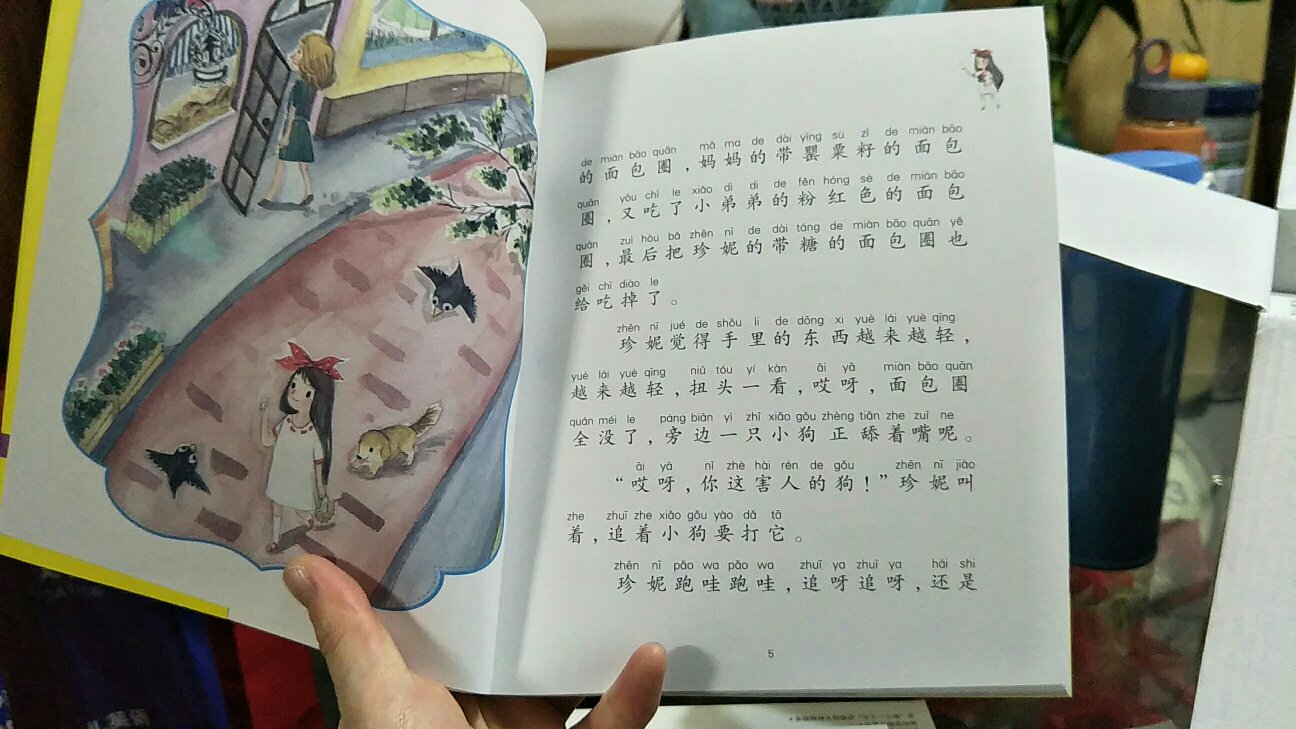 de miàn bāo quān   mā ma de dài yīng sù zǐ de miàn bāo
的面包圈，妈妈的带罂粟籽的面包
quān   yòu chī le xiǎo dì di de fěn hóng sè de miàn bāo
圈，又吃了小弟弟的粉红色的面包
quān   zuì hòu bǎ zhēn nī de dài táng de miàn bāo quān yě
圈，最后把珍妮的带糖的面包圈也
gěi chī diào le
给吃掉了。
zhēn nī jué de shǒu li de dōng xi yuè lái yuè qīng
珍妮觉得手里的东西越来越轻，
yuè lái yuè qīng   niǔ tóu yí kàn   āi yā   miàn bāo quān
越来越轻，扭头一看，哎呀，面包圈
quán méi le   páng biān yì zhī xiǎo gǒu zhèng tiǎn zhe zuǐ ne
全没了，旁边一只小狗正舔着嘴呢。
āi yā   nǐ zhè hài rén de gǒu   zhēn nī jiào
“哎呀，你这害人的狗！”珍妮叫
zhe   zhuī zhe xiǎo gǒu yào dǎ tā
着，追着小狗要打它。
zhēn nī pǎo wa pǎo wa   zhuī ya zhuī ya   hái shi
珍妮跑哇跑哇，追呀追呀，还是
5